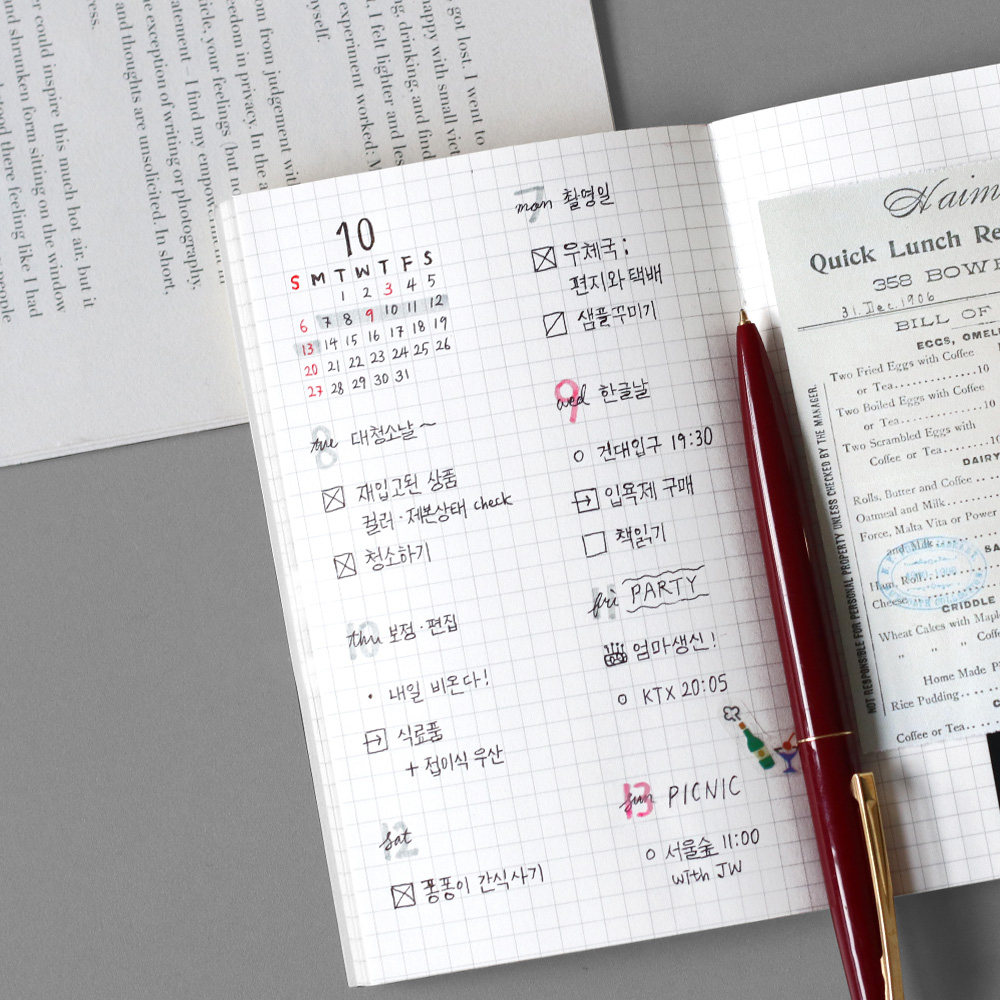 got lost. I went to
happy with small vict
ng, drinking, and find
, I felt lighter and les
experiment worked: M
yself.
om from judgement wi
edom in privacy. In the a
icle, your feelings (but no
atement – I find my empower
e exception of writing or photography,
and thoughts are unsolicited. In short,
ress.
er could inspire this much hot air, but it
nd shrunken form sitting on the window
stood there feeling like I had
people
10
S M T W T F S
1 2 3 4 5
6 7 8 9 10 11 12
13 14 15 16 17 18 19
20 21 22 23 24 25 26
27 28 29 30 31
8 tue 대청소날~
재입고된 상품
컬러·제본상태 check
청소하기
10 thu 보정·편집
· 내일 비온다!
식료품
+ 접이식 우산
12 sat
퐁퐁이 간식사기
7 mon 촬영일
우체국:
편지와 택배
샘플꾸미기
9 wed 한글날
건대입구 19:30
입욕제 구매
책읽기
11 fri PARTY
엄마생신!
KTX 20:05
13 sun PICNIC
서울숲 11:00
with JW
Haim
Quick Lunch Re
358 BOWE
31. Dec. 1906
BILL OF
EGGS, OMEL
Two Fried Eggs with Coffee
or Tea..........10
Two Boiled Eggs with Coffee
or Tea..........10
Two Scrambled Eggs with
Coffee or Tea......10
DAIRY
Rolls, Butter and Coffee
Oatmeal and Milk
Force, Malta Vita or Power
and Milk
SA
Ham, Roll
Cheese
GRIDDLE
Wheat Cakes with Maple
" " Coffe
Home Made P
Rice Pudding
Coffee or Tea
NOT RESPONSIBLE FOR PERSONAL PROPERTY UNLESS CHECKED BY THE MANAGER.